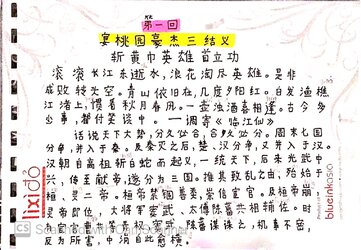 第一回
宴桃园豪杰三结义
斩黄巾英雄首立功
滚滚长江东逝水,浪花淘尽英雄。是非
成败转头空。青山依旧在,几度夕阳红。白发渔樵
江渚上,惯看秋月春风。一壶浊酒喜相逢。古今多
少事,都付笑谈中。 ——调寄《临江仙》
话说天下大势,分久必合,合久必分。周末七国
分争,并入于秦。及秦灭之后,楚、汉分争,又并入于汉。
汉朝自高祖斩白蛇而起义,一统天下,后来光武中
兴,传至献帝,遂分为三国。推其致乱之由,殆始于
桓、灵二帝。桓帝禁锢善类,崇信宦官。及桓帝崩,
灵帝即位,大将军窦武、太傅陈蕃共相辅佐。时
有宦官曹节等弄权,窦武、陈蕃谋诛之,机事不密,
反为所害,中涓自此愈横。
lixido
blueinkasia
CS